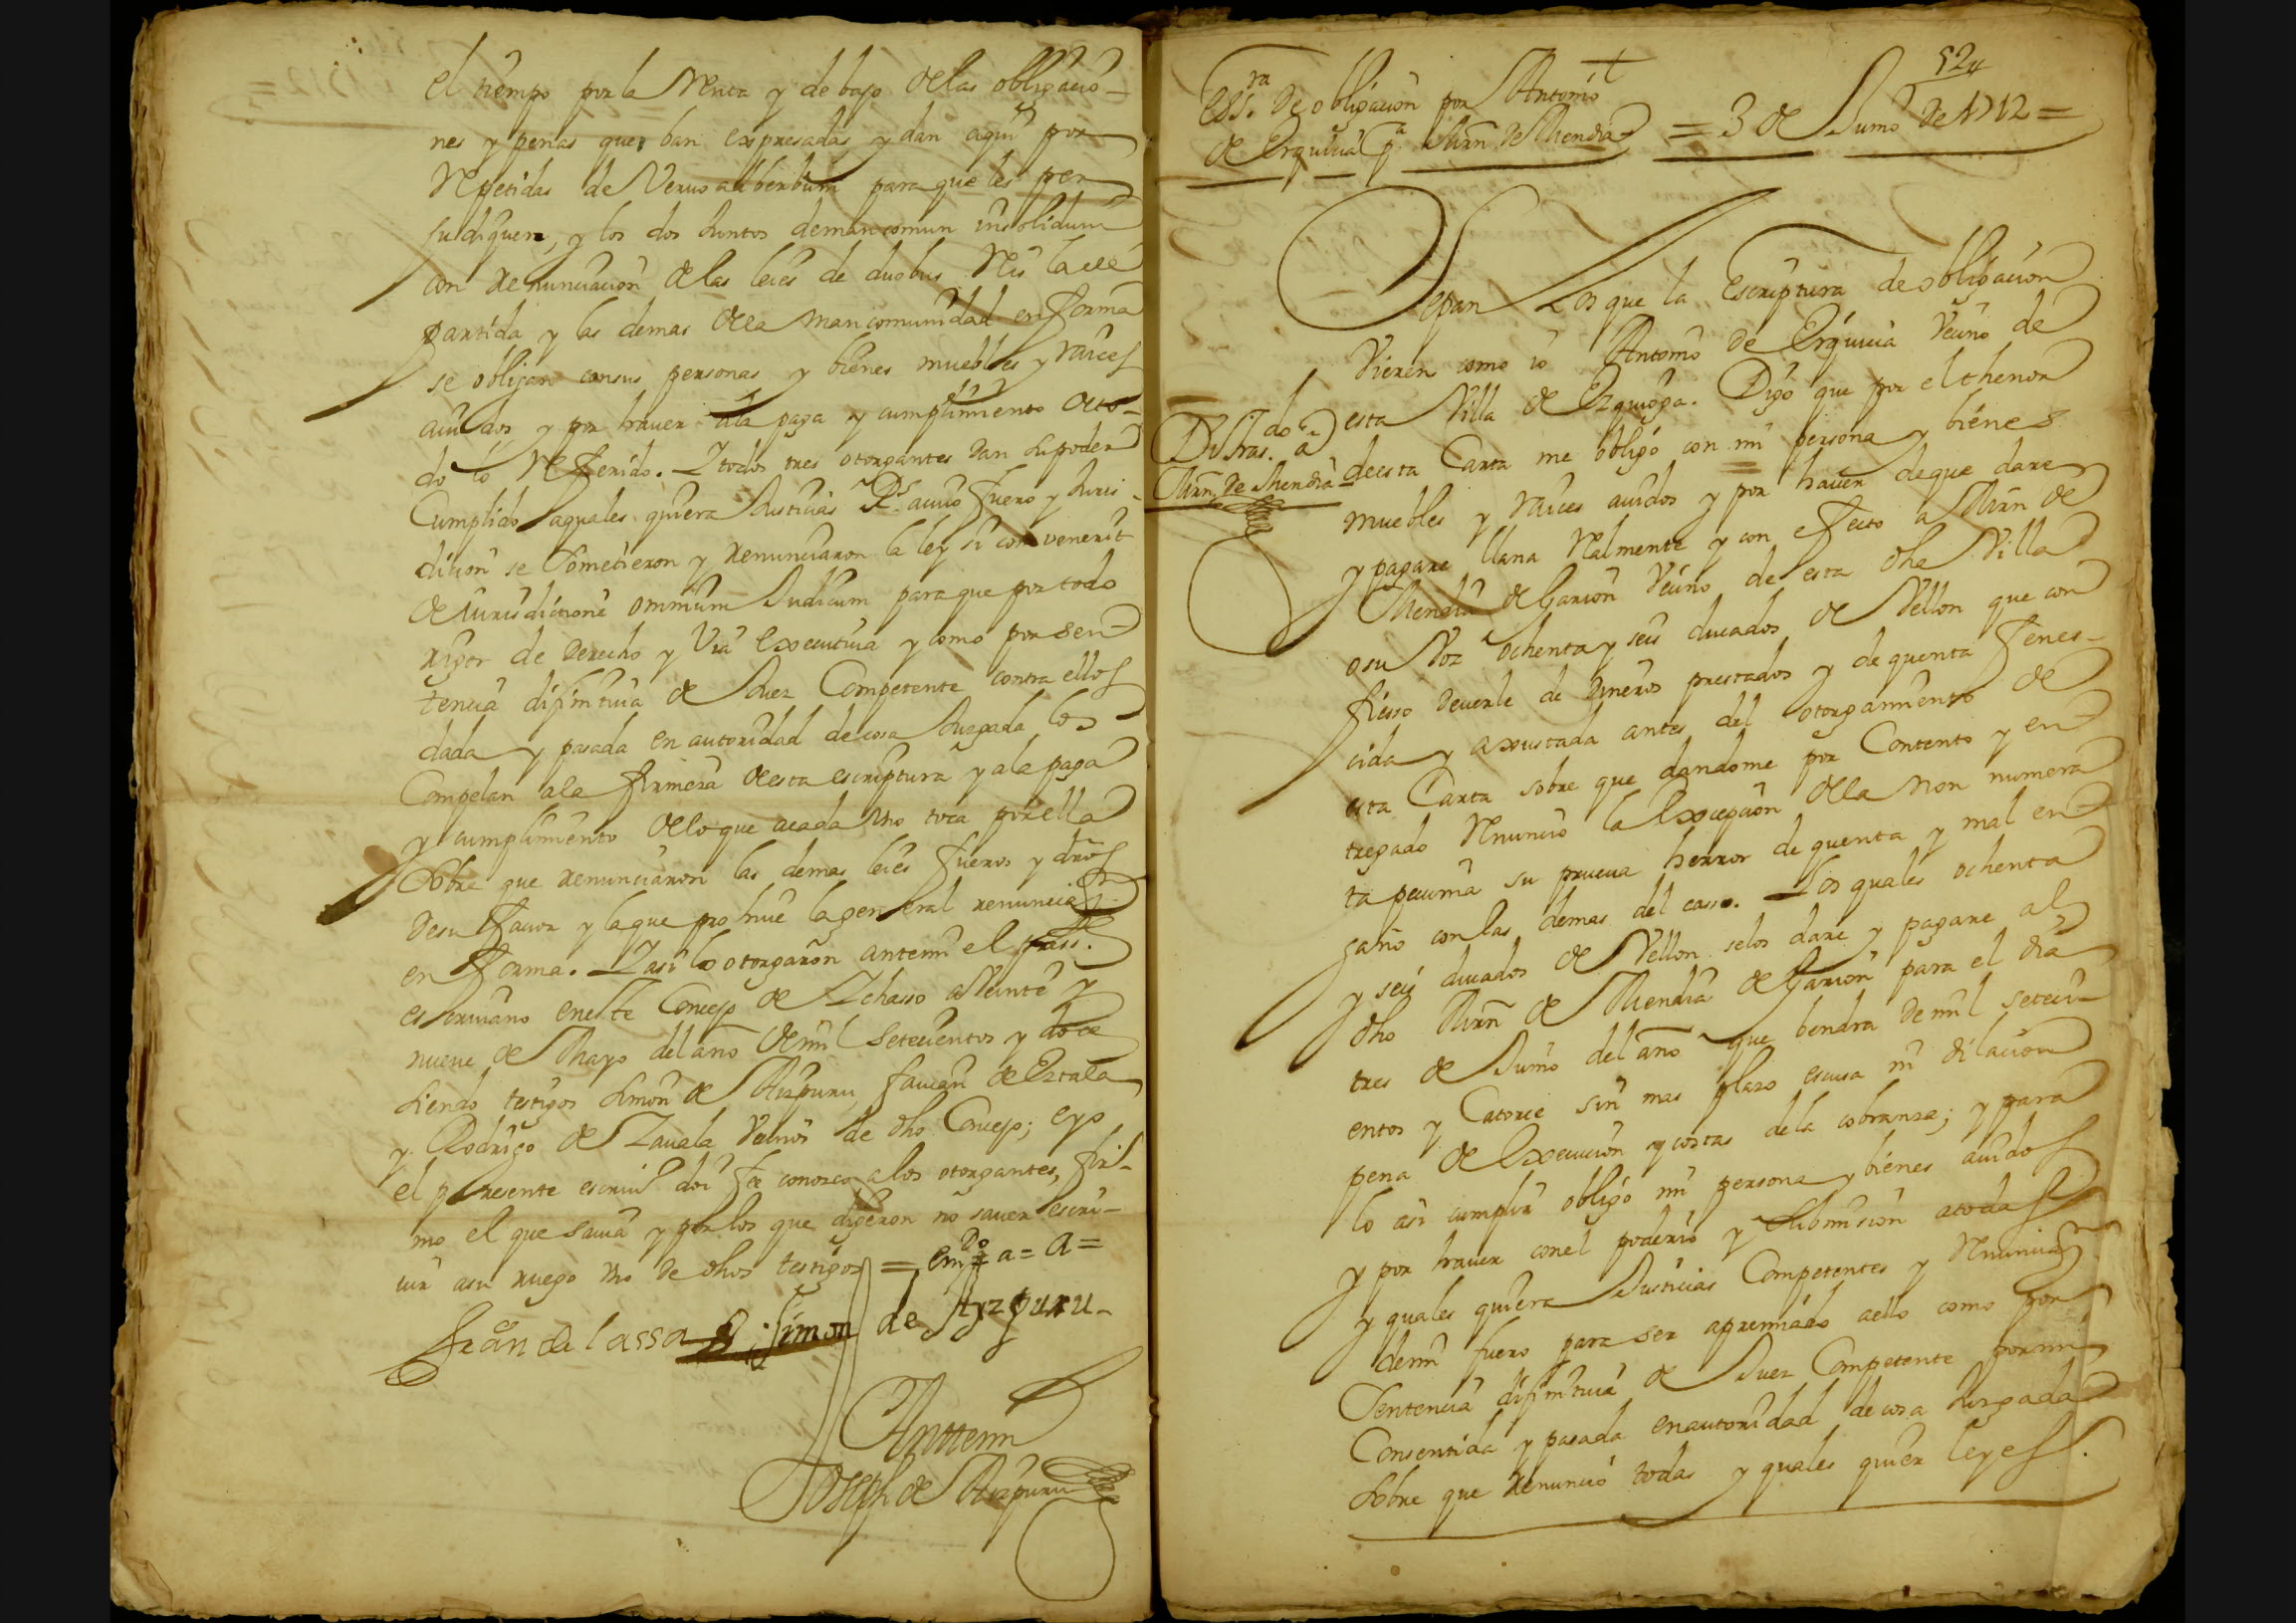 el tiempo por la Renta y debajo de las obligacio-
nes y penas que ban expresadas y dan aqui por
Repetidas de Veruo adberbum para que les per
judiquen, y los dos Juntos de mancomun insolidum
con renunciacion de las leies de duobus Reis la de
partida y las demas de la mancomunidad en forma
se obligan con sus personas y bienes muebles y raices
auidos y por hauer ala paga y cumplimiento de to-
do lo Referido. I todos tres otorgantes dan su poder
Cumplido a quales quiera Justicias a cuio fuero y Juris-
dicion se Sometieron y renunciaron la ley si convenerit
de iurisdictione omnium Judicum para que por todo
rigor de derecho y Via executiua y como por sen-
tencia difinitiua de Juez Competente contra ellos
dada y pasada en autoridad de cosa Juzgada los
Compelan ala firmeza de esta escriptura y ala paga
y cumplimiento de lo que a cada Vno toca por ella
Sobre que renunciaron las demas leies fueros y dros
de su fauor y la que prohiue la general renunciaz.on
en forma. I asi lo otorgaron ante mi el press.te
escriuano en este Concejo de Ichasso a Veinte y
nueue de Mayo del año de mil Setecientos y doce
siendo testigos Simon de Aizpuru, fauian de Eztala
y Rodrigo de Zauala Vecinos de dho Concejo; e yo
el presente escriu.o doi fee conozco a los otorgantes, fir-
mo el que sauia y por los que dijeron no sauer escri-
uir a su ruego Vno de dhos testigos = em.do a = a =
fran.co de lassa Simon de Ayzpuru-
Antte mi
Joseph de Aizpuru
524
Ess.ra de obligacion por Antonio
de Erquicia p.a Mrn de Mendia = 3 de Junio de 1712 =
Sepan Los que la Escriptura de obligacion
Vieren como io Antonio de Erquicia Vecino de
esta Villa de Ezquioga. Digo que por el thenor
de esta Carta me obligo con mi persona y bienes
muebles y raices auidos y por hauer de que dare
y pagare llana Realmente y con efecto a Mrn de
Mendia de Garion Vecino de esta dha Villa
o su Voz ochenta y seis ducados de Vellon que con
fiesso deuerle de dineros prestados y de quenta fenes-
cida y axustada antes del otorgamiento de
esta Carta sobre que dandome por Contento y en
tregado Renuncio la Excepcion de la non numera
ta pecunia su prueua herror de quenta y mal en
gaño con las demas del casso. Los quales ochenta
y seis ducados de Vellon se los dare y pagare al
dho Mrn de Mendia de Garion para el dia
tres de Junio del año que bendra de mil setecie-
entos y Catorce sin mas plazo escusa ni dilacion
pena de Execucion y costas de la cobranza; y para
lo asi cumplir obligo mi persona y bienes auidos
y por hauer con el poderio y Submision a todas
y quales quiera Justicias Competentes y Renuncia
de mi fuero para ser apremiado a ello como por
Sentencia difinitiua de Juez Competente por mi
Consentida y pasada en autoridad de cosa Juzgada
Sobre que renuncio todas y quales quier leyes.
a
Mrn de Mendia